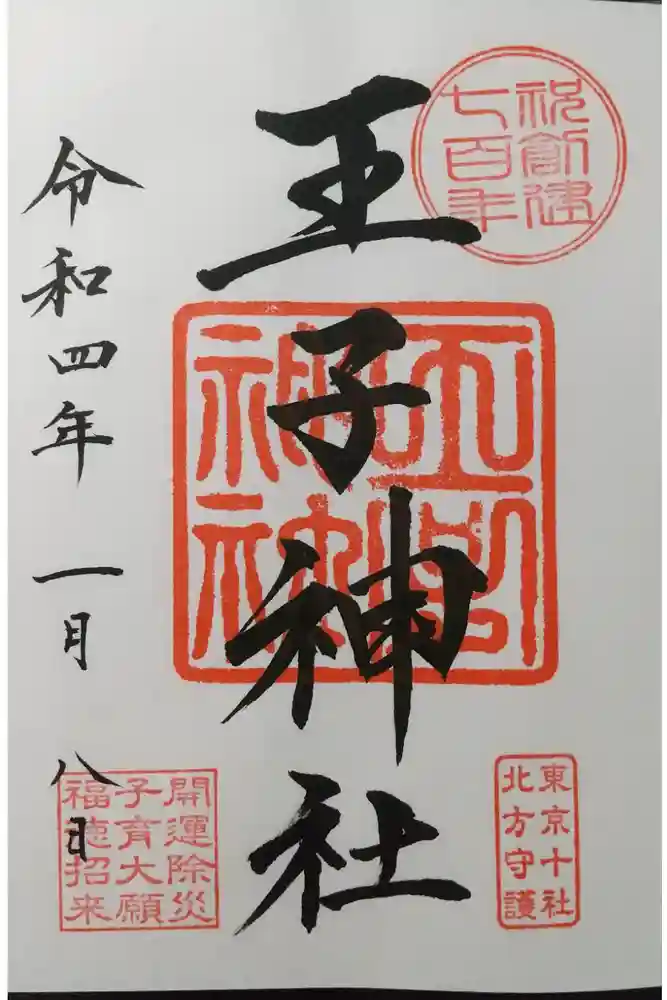 祝創建
七百年
王子神社
東京十社
北方守護
令和四年 一月 八日
開運除災
子育大願
福徳招来